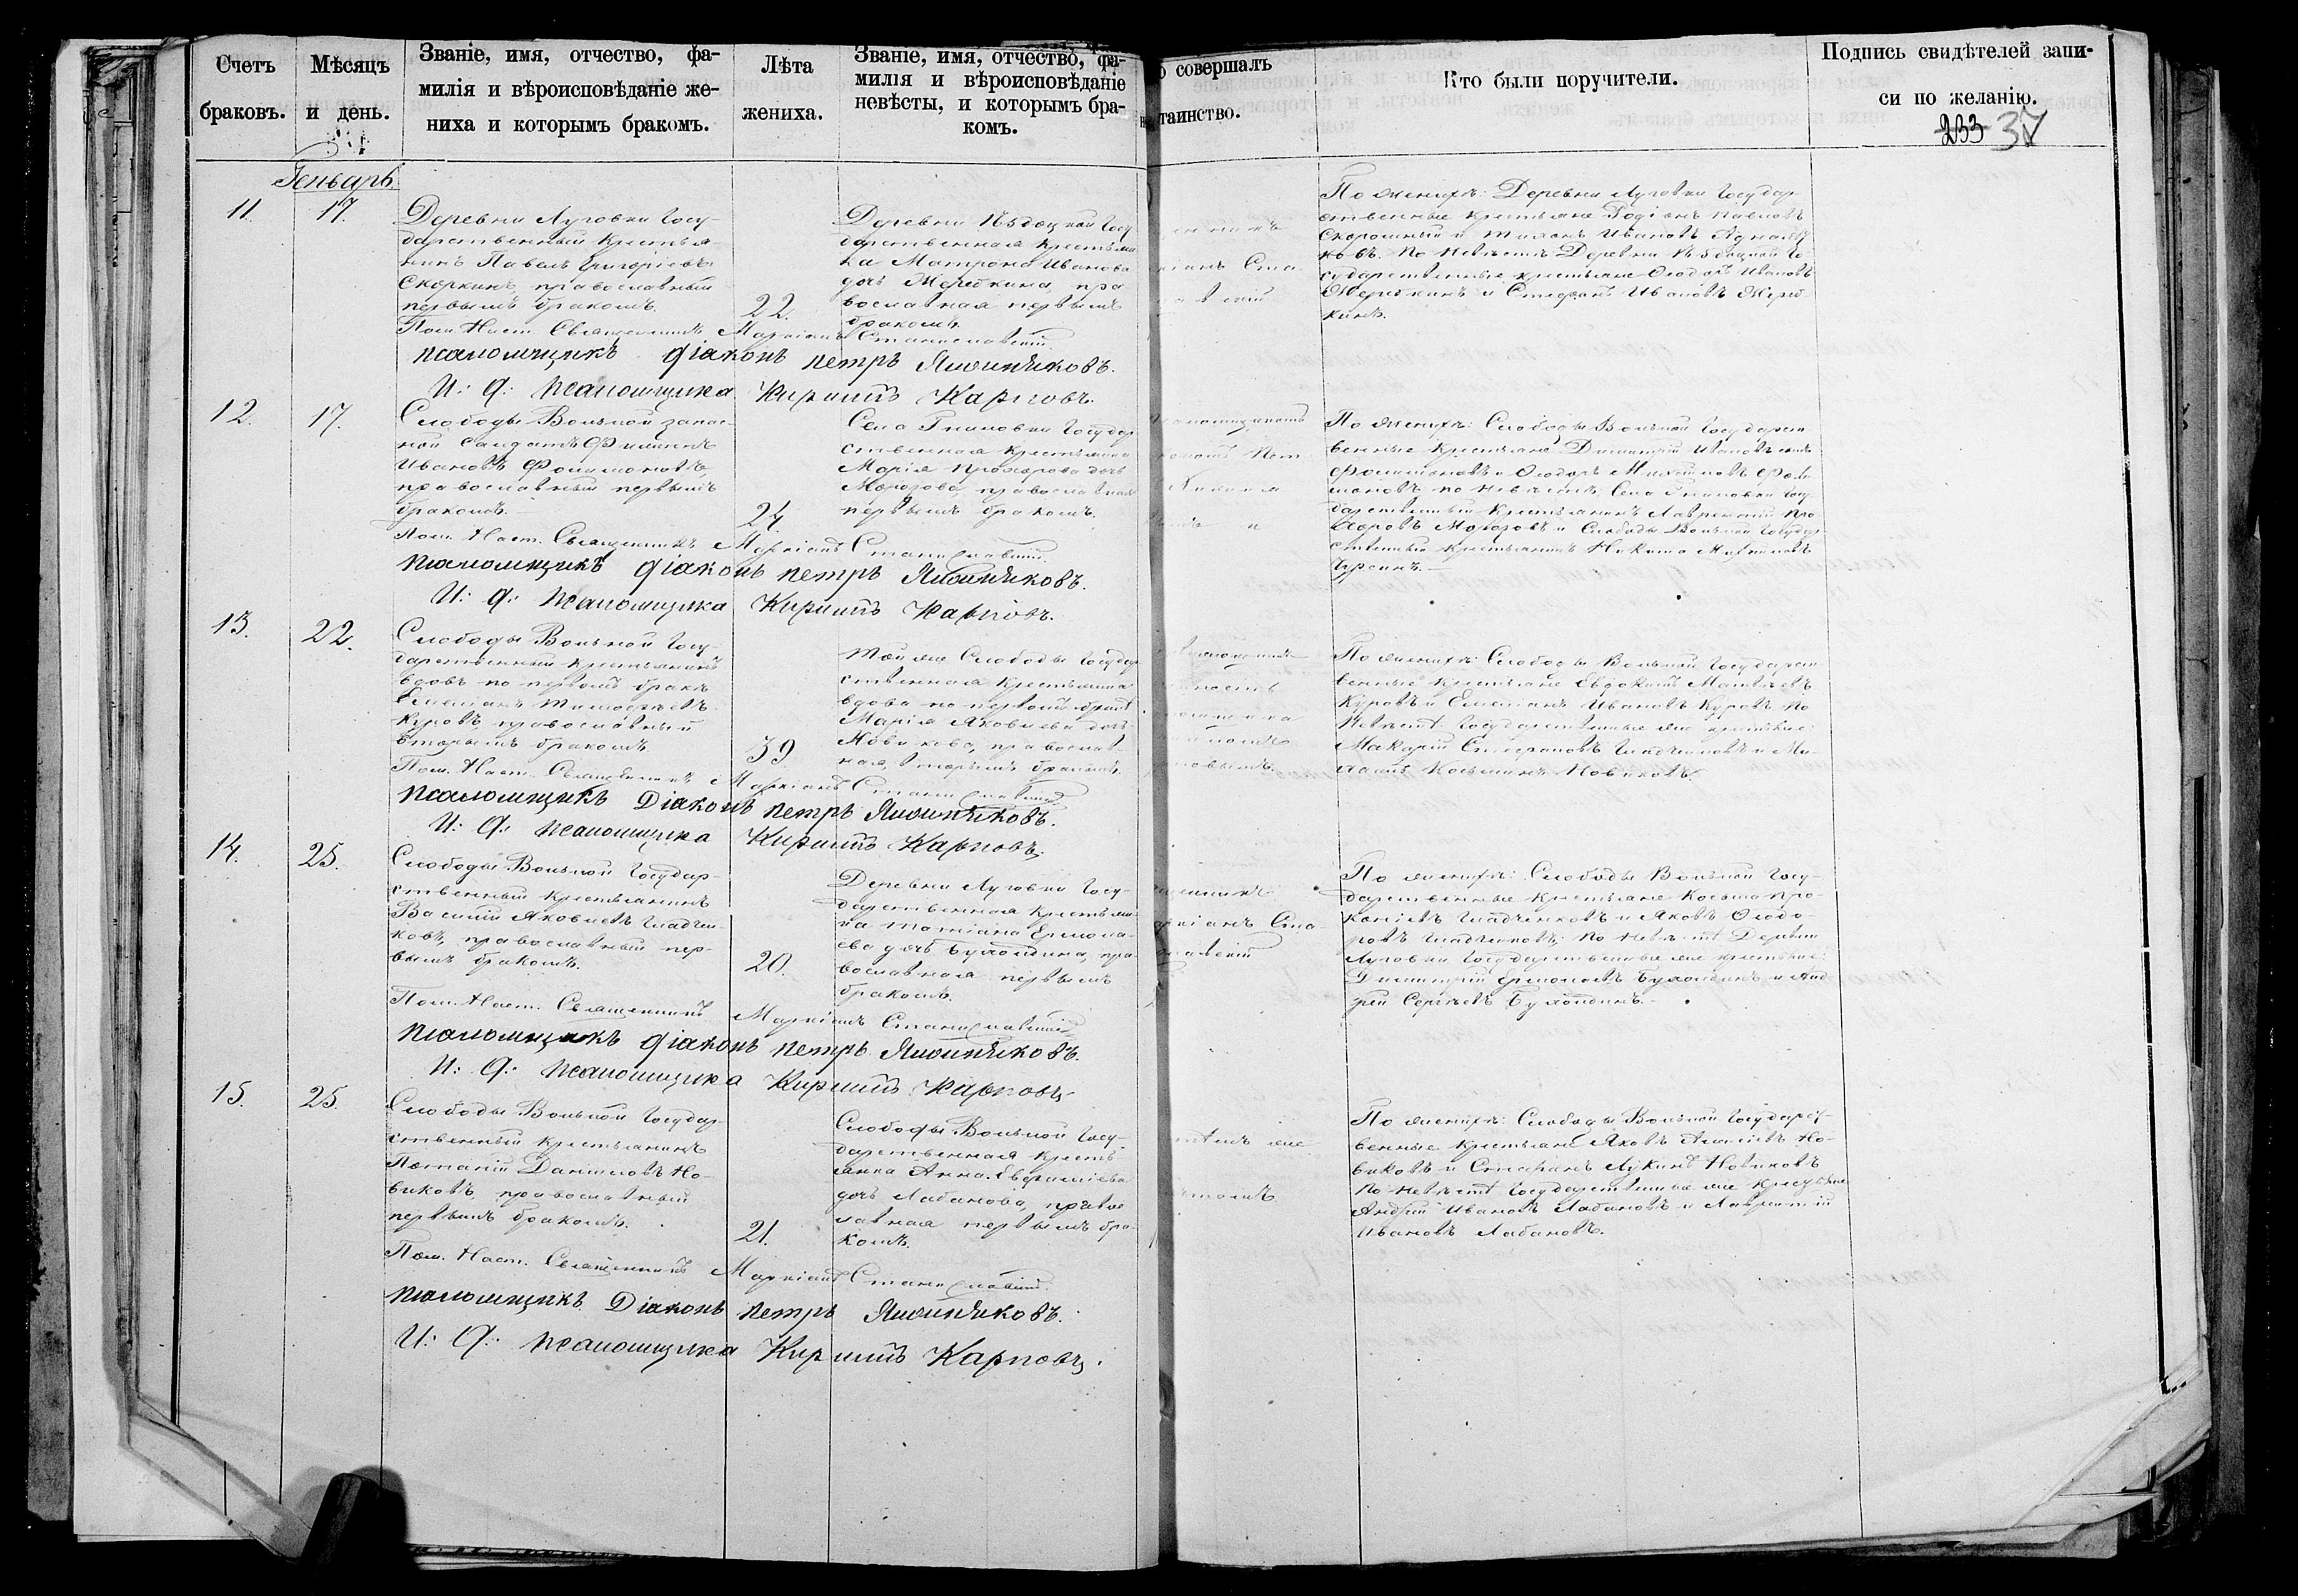 Счетъ
браковъ.
Мѣсяцъ
и день.
Званіе, имя, отчество, фа-
милія и вѣроисповѣданіе же-
ниха и которымъ бракомъ.
Лѣта
жениха.
Званіе, имя, отчество, фа-
милія и вѣроисповѣданіе
невѣсты, и которымъ бра-
комъ.
совершалъ
таинство.
Кто были поручители.
Подпись свидѣтелей запи-
си по желанію.
233 37
Генварь
11.
17.
Деревни Луговки Госу-
дарственный крестья-
нинъ Павелъ Григоріевъ
Скоркинъ, православный
первымъ бракомъ.
22.
Деревни
дарственная крестьян
ка Матрона Иванова
дочь Жеребкина, пра
вославная первымъ
бракомъ.
Ста
По женихѣ: Деревни Луговки Государ
ственные крестьяне Родіонъ Павловъ
и Иванъ
По невѣстѣ Деревни Го
сударственные крестьяне Ѳеодоръ Ивановъ
Жеребкинъ и Стефанъ Ивановъ Жереб-
кинъ.
Пом. Наст. Священникъ Маркіанъ Станиславскій
псаломщикъ діаконъ петръ
И. д. псаломщика Кириллъ Карповъ.
12.
17.
Слободы Вольной запас-
ной солдатъ Филиппъ
Ивановъ Филимоновъ,
православный первымъ
бракомъ.
24.
Села Гниловки Государ
ственная крестьянка
Марія Прохорова дочь
Морозова, православная
первымъ бракомъ.
По женихѣ: Слободы Вольной Государст
венные крестьяне Димитрій Ивановъ сынъ
Филимоновъ и Ѳеодоръ Михайловъ Фили
моновъ по невѣстѣ, Села Гниловки Госу
дарственный крестьянинъ Лаврентій Про
хоровъ Морозовъ и Слободы Вольной Государ
ственный крестьянинъ Никита
Пом. Наст. Священникъ Маркіанъ Станиславскій
псаломщикъ діаконъ петръ
И. д. псаломщика Кириллъ Карповъ.
13.
22.
Слободы Вольной Госу-
дарственный крестьянинъ
вдовъ по первомъ бракѣ
Емеліанъ Тимофеевъ
Куровъ, православный
вторымъ бракомъ
39
Той же Слободы Государ
ственная крестьянка
вдова по первомъ бракѣ
Марія Яковлева дочь
Новикова, православ-
ная, вторымъ бракомъ.
По женихѣ: Слободы Вольной Государст
венные крестьяне Евдокимъ Матвѣевъ
Куровъ и Емеліанъ Ивановъ Куровъ по
невѣстѣ Государственные же крестьяне:
Макарій Стефановъ Гладченковъ и Ми-
хаилъ Косьминъ Новиковъ.
Пом. Наст. Священникъ Маркіанъ Станиславскій
псаломщикъ Діаконъ петръ
И. д. псаломщика Кириллъ Карповъ.
14.
25.
Слободы Вольной Государ-
ственный крестьянинъ
Василій Яковлевъ Гладчен
ковъ, православный пер-
вымъ бракомъ.
20.
Деревни Луговки Госу-
дарственная крестьян-
ка Татіана Ермола-
ева дочь Булондина, пра
вославная первымъ
бракомъ.
Ста
По женихѣ: Слободы Вольной Госу-
дарственные крестьяне Косьма Про-
копіевъ Гладченковъ и Яковъ Ѳеодо-
ровъ Гладченковъ; по невѣстѣ Деревни
Луговки Государственные же крестьяне:
Димитрій Ермолаевъ Булондинъ и Анд
рей Сергѣевъ Булондинъ.
Пом. Наст. Священникъ Маркіанъ Станиславскій
псаломщикъ діаконъ петръ
И. д. псаломщика Кириллъ Карповъ
15.
25.
Слободы Вольной Государ
ственный крестьянинъ
Потапій Даниловъ Но-
виковъ, православный
первымъ бракомъ.
21.
Слободы Вольной Госу-
дарственная кресть-
янка Анна Евфиміева
дочь Лабанова, правос
лавная первымъ бра-
комъ.
По женихѣ: Слободы Вольной Государст-
венные крестьяне Яковъ Алексіевъ Но-
виковъ и Стефанъ Лукинъ Новиковъ
по невѣстѣ Государственные же крестьяне
Андрей Ивановъ Лабановъ и Лаврентій
Ивановъ Лабановъ.
Пом. Наст. Священникъ Маркіанъ Станиславскій
псаломщикъ Діаконъ петръ
И. д. псаломщика Кириллъ Карповъ.